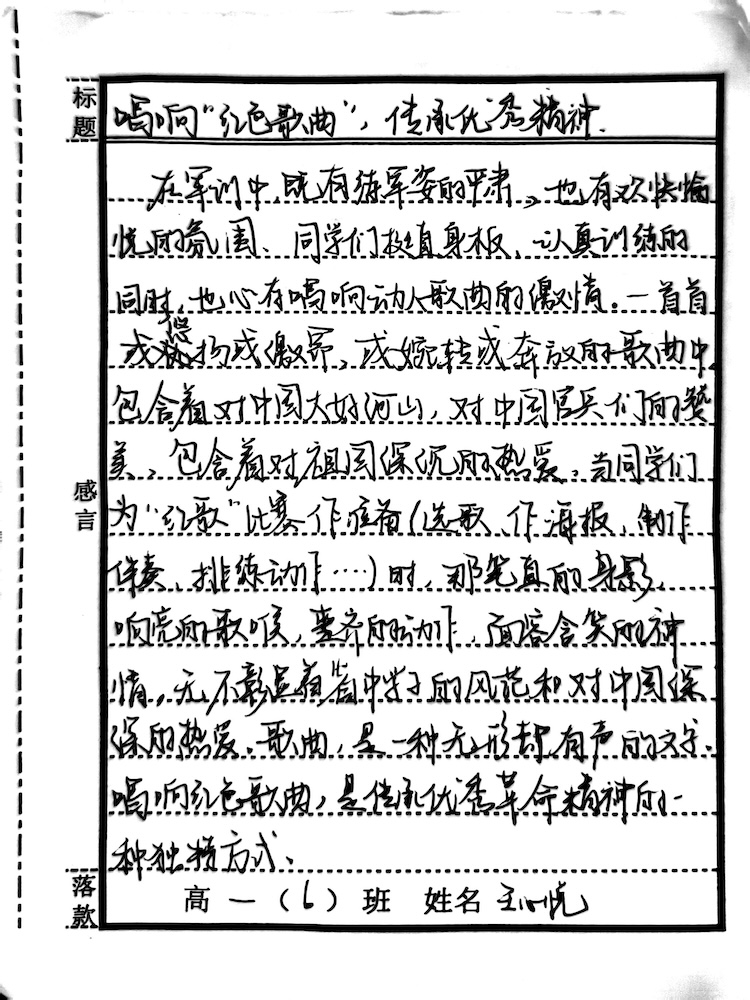 标题
唱响"红色歌曲"，传承优秀精神.
在军训中,既有练军姿的严肃，也有欢快愉
悦的氛围、同学们挺直身板、认真训练的
同时,也心存唱响动人歌曲的激情。一首首
或悠扬或激昂、或婉转或奔放的歌曲中
包含着对中国大好河山，对中国官兵们的赞
美、包含着对祖国深沉的热爱。当同学们
为"红歌"比赛作准备(选歌、作海报、制作
伴奏、排练动作…)时，那笔直的身影、
响亮的歌喉，整齐的动作，面容含笑的神
情，无不彰显着 中学子的风范和对中国深
深的热爱。歌曲，是一种无形却有声的文字.
唱响红色歌曲，是传承优秀革命精神的一
种独特方式、
感言
落款
高一(6)班 姓名 王心悦